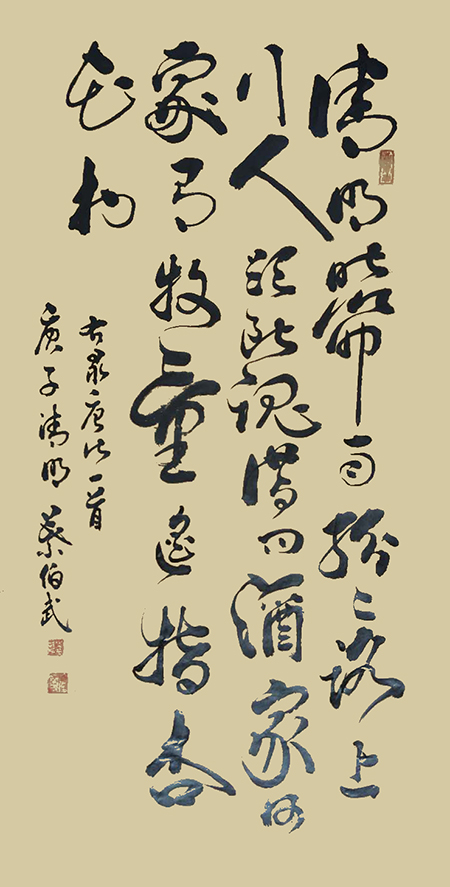 清明時節雨紛々路上
行人欲斷魂借問酒家何
處有牧童遙指杏
花村
右录唐诗一首
庚子清明 蔡伯武